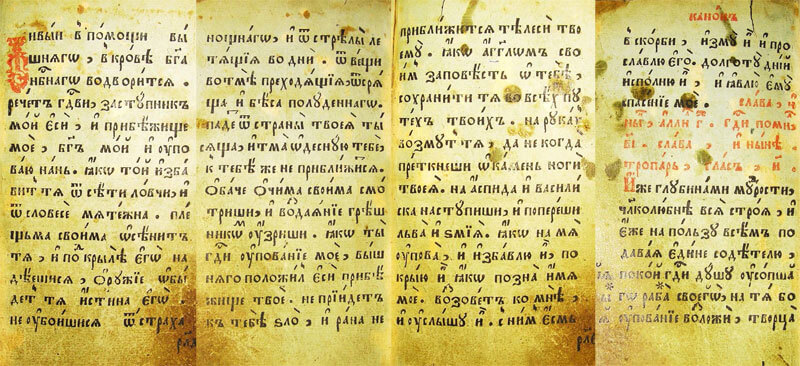 Живыи в помощи вы
шнягѡ, в кровѣ бг҃а
нб҃нагѡ водворится.
речетъ гд҇ви, заступникъ
мой єси, и прибѣжище
мое, бг҃ъ мой и упо
ваю нань. ꙗкѡ той изба
вит тѧ ѿ сѣти ловчи, и
ѿ словесе мѧтежна. пле
щьма своима ѡсѣнит
тѧ, и по крылѣ єгѡ на
дѣешися, ѻружїе ѡбы
дет тѧ истина єгѡ.
не убоишися ѿ страха
нощнагѡ, и ѿ стрѣлы ле
тѧщїѧ во дни. ѿ вещи
во тмѣ преходѧщїѧ, ѿ срѧ
ща и бѣса полуденнагѡ.
падет ѿ страны твоеѧ ты
сѧща, и тма ѡдесную тебе,
к тебѣ же не приближится.
Обаче ѻчима своима смо
триши, и воздаѧнїе грѣш
никѡм узриши. ꙗкѡ ты
гд҇и упованїе мое, выш
нѧго положил єси прибѣ
жище твое. не прїидетъ
к тебѣ ѕло, и рана не
приближится тѣлеси тво
ему. ꙗкѡ агг҃лѡм сво
им заповѣсть ѡ тебѣ,
сохранити тѧ во всѣх пу
тех твоих. на руках
возмут тѧ, да не когда
преткнеши ѡ камень ноги
твоеѧ. на аспида и васили
ска наступиши, и попереши
льва и ѕмїѧ. ꙗкѡ на мѧ
упова, и избавлю и, по
крыю и ꙗкѡ позна имѧ
мое. воззоветъ ко мнѣ,
и услышу и. с ним єсмь
канонъ
в скорби, изму и и про
славлю єго. долготу дній
исполню и, и ꙗвлю єму
спасенїе мое. слава, и
ны, аллиг. гд҇и поми
в҃і. слава, и нынѣ
тропарь, гласъ и҃
Иже глубинами мудрости,
чл҃колюбнѣ всѧ строѧ, и
єже на пользу всѣм по
даваѧ єдине содѣтелю,
покой гд҇и душу усопша
гѡ раба своегѡ, на тѧ бо
упованїе возложи, творца